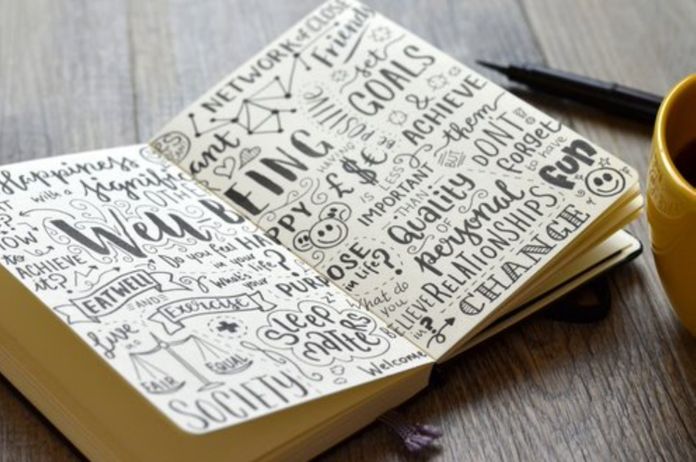 Happiness
with a significant
OTHER
HOW
to
ACHIEVE
it?
Well BEING
Do you feel HAPPY
in
your life?
What's
your
PURPOSE
in life?
EAT WELL
AND
Exercise
Live in
a
FAIR
EQUAL
SOCIETY
zz
Sleep
matters
Welcome
NETWORK of CLOSE
Friends
Set
GOALS
&
ACHIEVE
them
BUT
DON'T
forget
to have
fun
THINK
POSITIVE
HAVING
£$€
IS LESS
IMPORTANT
THAN
Quality
OF
personal
RELATIONSHIPS
What do
you
BELIEVE
in?
CHANGE